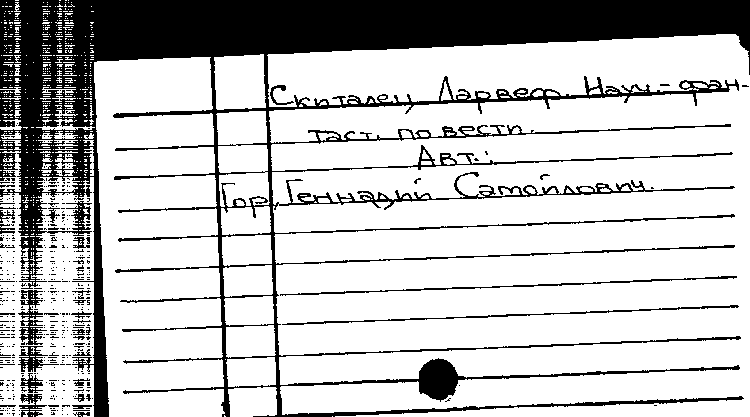 Скиталец Ларвеф. Науч.-фан-
таст. повести.
Авт.:
Гор, Геннадий Самойлович.